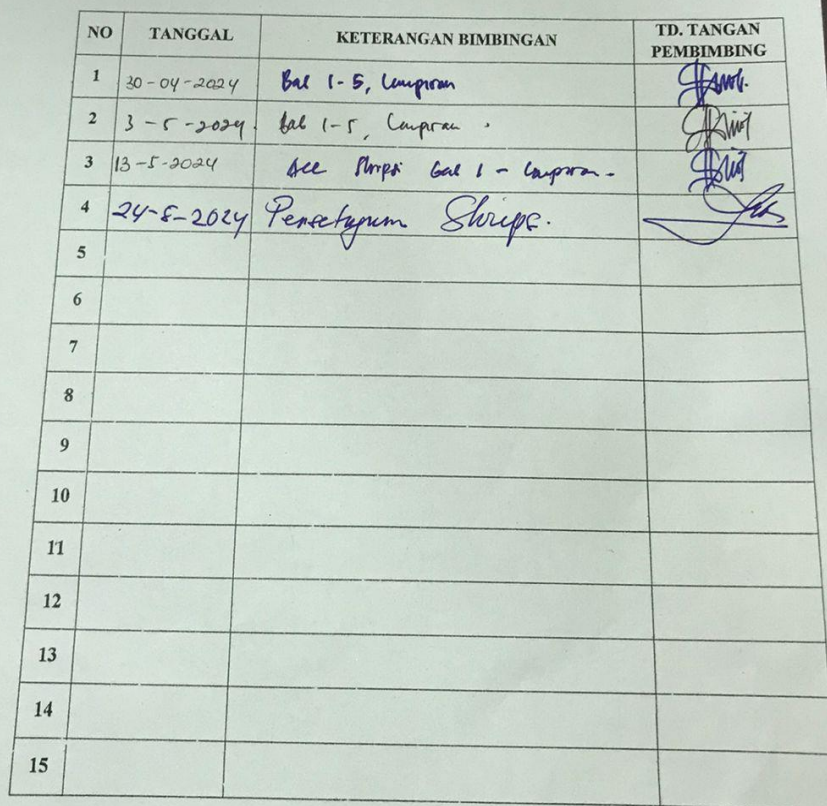 NO TANGGAL KETERANGAN BIMBINGAN TD. TANGAN PEMBIMBING
1 30-04-2024 Bab 1-5, Lampiran
2 3-5-2024. Bab 1-5, Lampiran
3 13-5-2024 Acc Skripsi Bab 1 - Lampiran
4 24-5-2024 Persetujuan Skripsi.
5
6
7
8
9
10
11
12
13
14
15